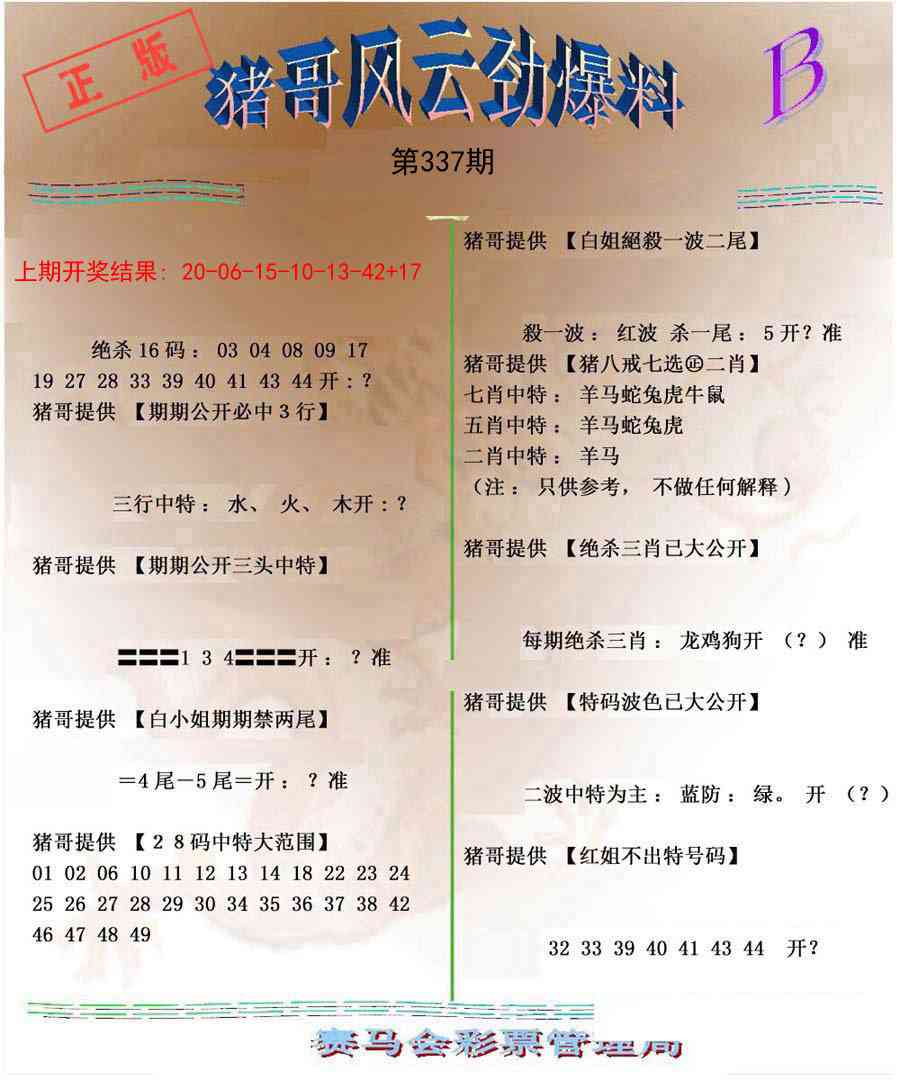 正版
猪哥风云劲爆料
B
第337期
上期开奖结果: 20-06-15-10-13-42+17
绝杀16码： 03 04 08 09 17
19 27 28 33 39 40 41 43 44开：？
猪哥提供 【期期公开必中3行】
三行中特： 水、 火、 木开：？
猪哥提供 【期期公开三头中特】
〓〓〓1 3 4〓〓〓开： ？准
猪哥提供 【白小姐期期禁两尾】
＝4尾－5尾＝开： ？准
猪哥提供 【２８码中特大范围】
01 02 06 10 11 12 13 14 18 22 23 24
25 26 27 28 29 30 34 35 36 37 38 42
46 47 48 49
猪哥提供 【白姐絕殺一波二尾】
殺一波： 红波 杀一尾： 5开？准
猪哥提供 【猪八戒七选㊣二肖】
七肖中特： 羊马蛇兔虎牛鼠
五肖中特： 羊马蛇兔虎
二肖中特： 羊马
（注： 只供参考， 不做任何解释)
猪哥提供 【绝杀三肖已大公开】
每期绝杀三肖： 龙鸡狗开 （？） 准
猪哥提供 【特码波色已大公开】
二波中特为主： 蓝防： 绿。 开 （？）
猪哥提供 【红姐不出特号码】
32 33 39 40 41 43 44 开？
赛马会彩票管理局